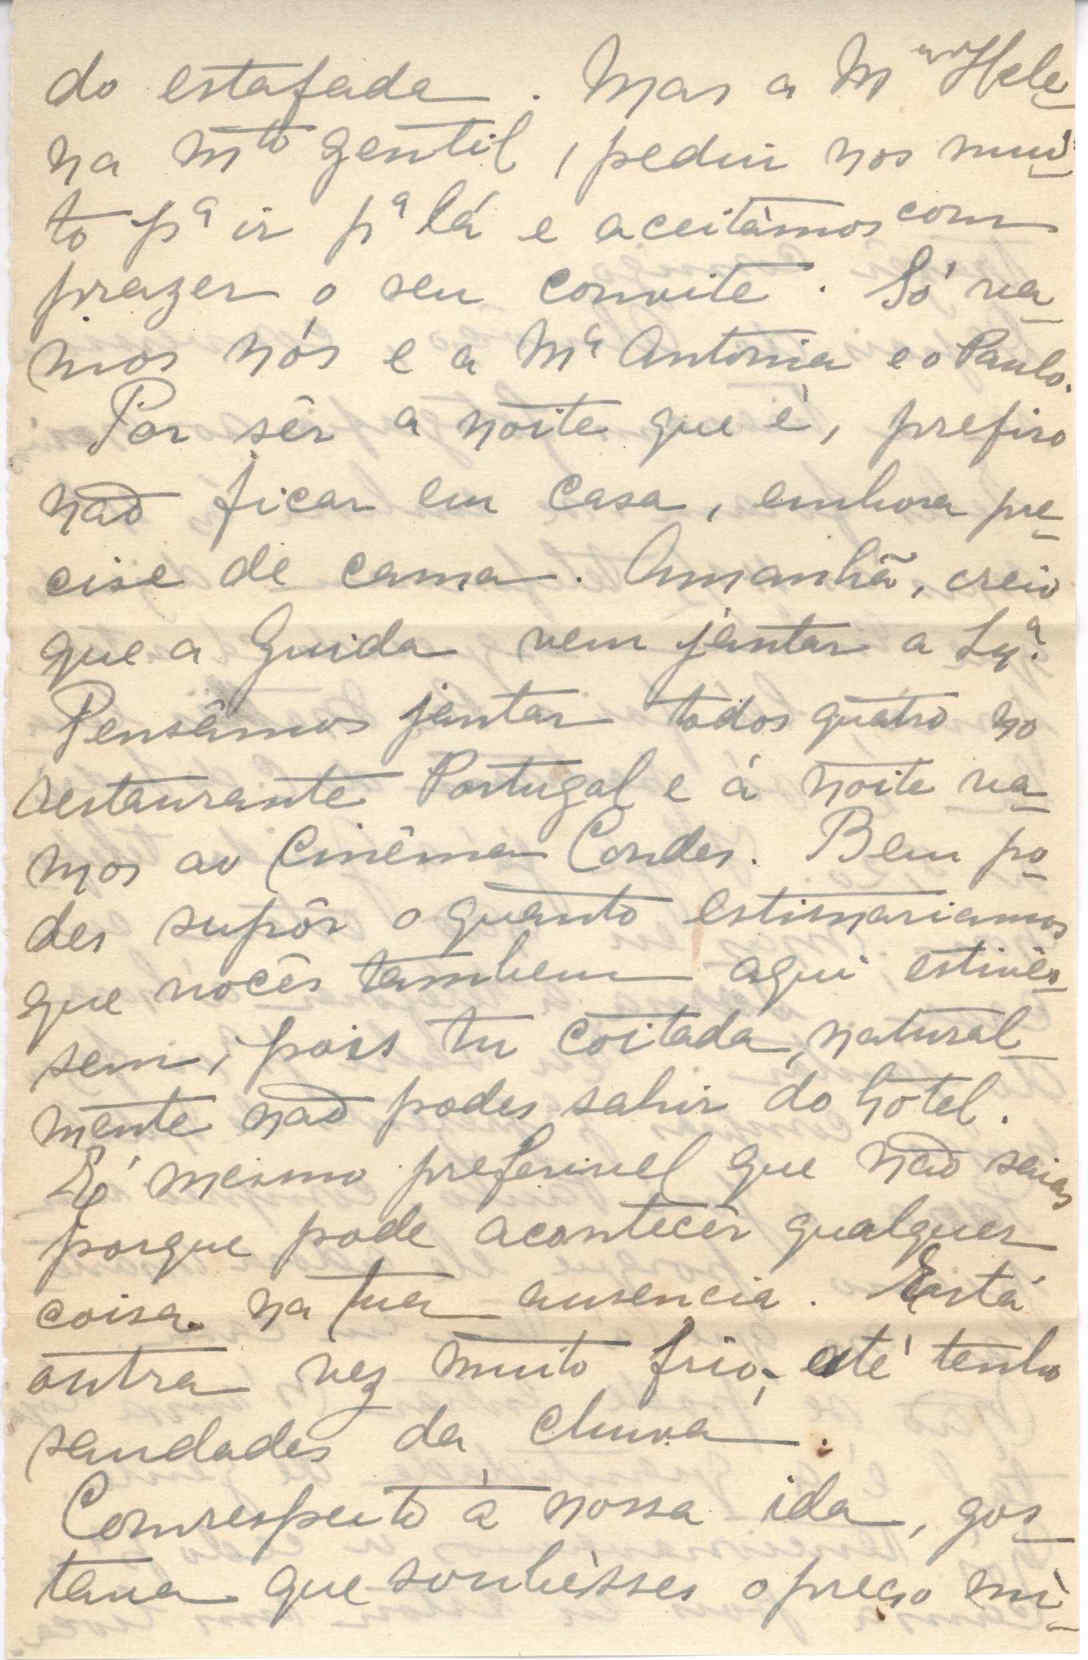 do estafada. Mas a Mᵐᵉ Hele-
na mᵗᵒ gentil, pediu nos mui-
to pª ir pª lá e aceitàmos com
prazer o seu convite. Só va-
mos nós e a Mª Antonia e o Paulo.
Por sêr a noite que é, prefiro
não ficar em casa, embora pre-
cise de cama. Amanhã, creio
que a Guida vem jantar a Lxª.
Pensâmos jantar todos quatro no
restaurante Portugal e á noite va-
mos ao Cinêma Condes. Bem po-
des supôr o quanto estimariamos
que vocês tambem aqui estivés-
sem, pois tu coitada, natural-
mente não podes sahir do hotel.
É mesmo preferivel que não saias
porque pode acontecêr qualquer
coisa na tua ausencia. Está
outra vez muito frio, até tenho
saudades da chuva.
Comrespeito à nossa ida, gos-
tava que soubèsses o preço mí-